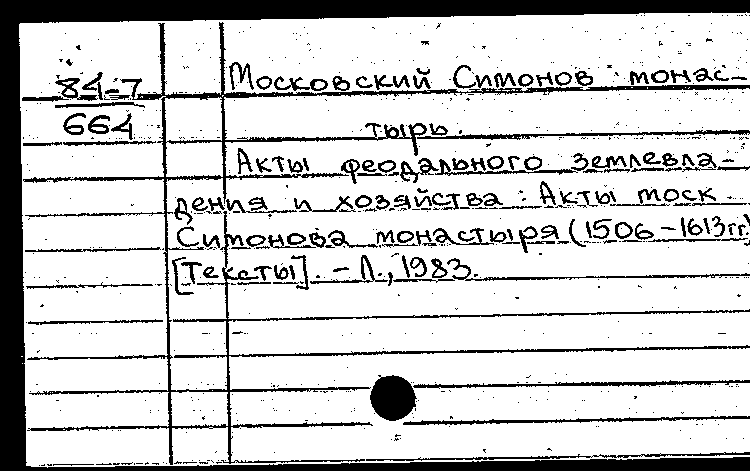 84-7
664
Московский Симонов монас-
тырь.
Акты феодального землевла-
дения и хозяйства: Акты моск.
Симонова монастыря (1506-1613гг.)
[Тексты]. - Л., 1983.